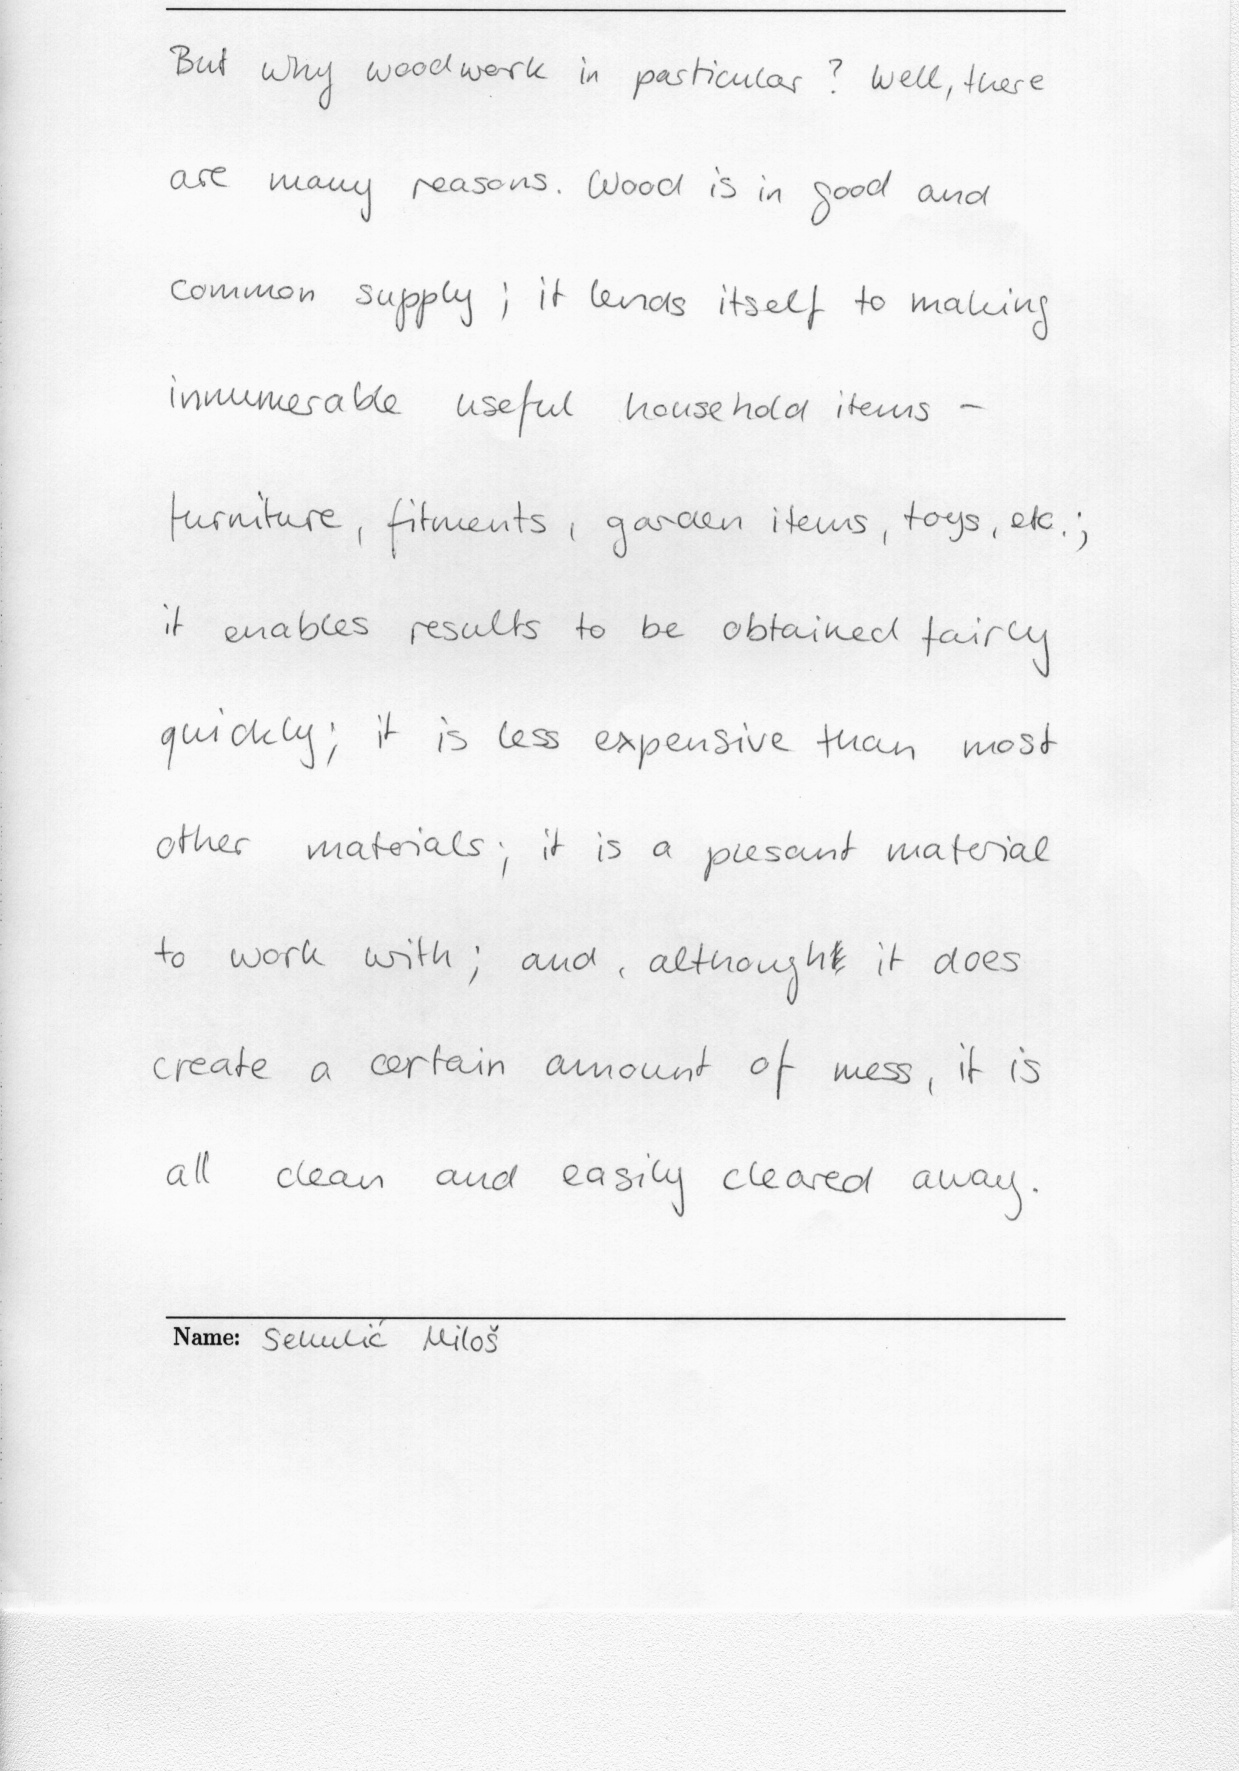 But why woodwork in particular? Well, there
are many reasons. Wood is in good and
common supply; it lends itself to making
innumerable useful household items -
furniture, fitments, garden items, toys, etc.;
it enables results to be obtained fairly
quickly; it is less expensive than most
other materials; it is a plesant material
to work with; and, although it does
create a certain amount of mess, it is
all clean and easily cleared away.
Name: Sekulić Miloš